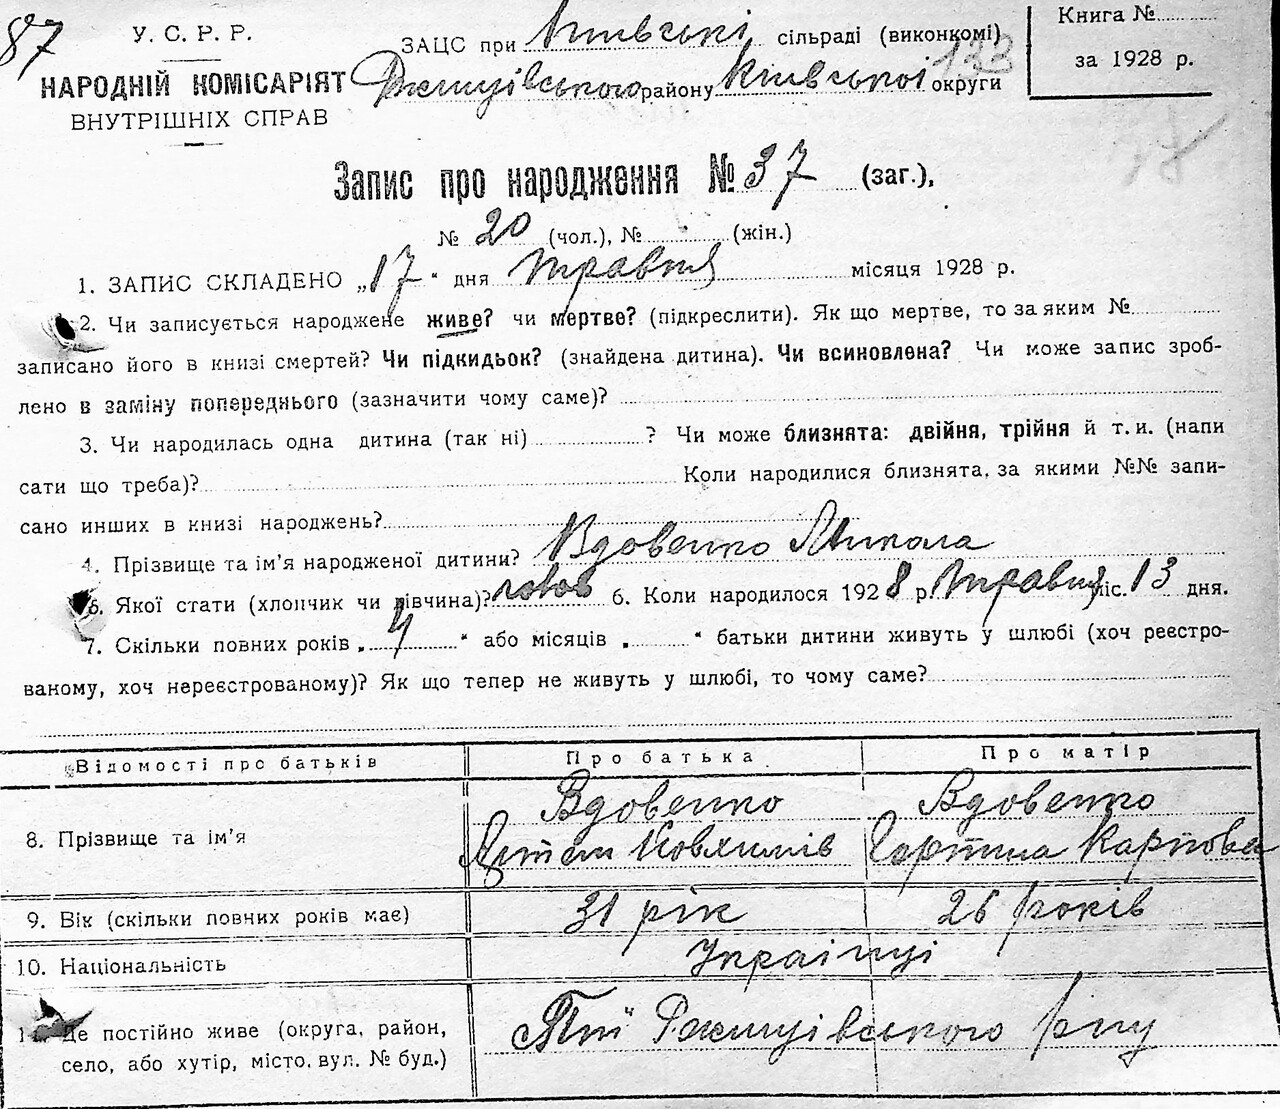 87
У. С. Р. Р.
НАРОДНІЙ КОМІСАРІЯТ
ВНУТРІШНІХ СПРАВ
ЗАЦС при сільраді (виконкомі)
Ржищівського району Київської округи
133
Книга №
за 1928 р.
Запис про народження № 37 (заг.),
№ 20 (чол.), № (жін.)
1. ЗАПИС СКЛАДЕНО „17“ дня травня місяця 1928 р.
2. Чи записується народжене живе? чи мертве? (підкреслити). Як що мертве, то за яким №
записано його в книзі смертей? Чи підкидьок? (знайдена дитина). Чи всиновлена? Чи може запис зроб-
лено в заміну попереднього (зазначити чому саме)?
3. Чи народилась одна дитина (так ні) ? Чи може близнята: двійня, трійня й т. и. (напи
сати що треба)? Коли народилися близнята, за якими №№ запи-
сано инших в книзі народжень?
4. Прізвище та ім’я народженої дитини? Вдовенко Микола
5. Якої стати (хлопчик чи дівчина)? 6. Коли народилося 1928 р. травня міс. 13 дня.
7. Скільки повних років „4“ або місяців „ “ батьки дитини живуть у шлюбі (хоч реєстро-
ваному, хоч нереєстрованому)? Як що тепер не живуть у шлюбі, то чому саме?
Відомості про батьків Про батька Про матір
8. Прізвище та ім’я Вдовенко Вдовенко
Карпова
9. Вік (скільки повних років має) 31 рік 26 років
10. Національність Українці
11. Де постійно живе (округа, район,
село, або хутір, місто, вул. № буд.) Ржищівського р-ну